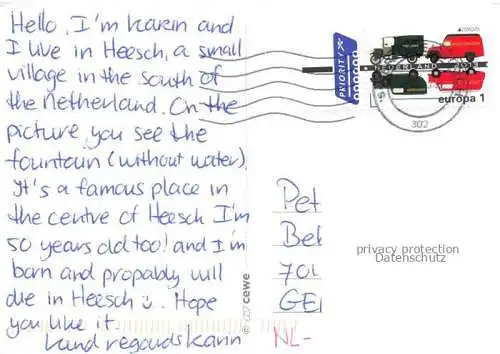 Hello, I'm Karin and
I live in Heesch, a small
village in the south of
the Netherland. On the
picture, you see the
fountain (without water).
It's a famous place in
the centre of Heesch I'm
50 years old too! and I'm
born and propably will
die in Heesch ü. Hope
you like it.
kind regards Karin
PRIORITY
NEDERLAND 2013
europa 1
302
Pet
Bel
70
GE
NL-
privacy protection
Datenschutz
© cewe